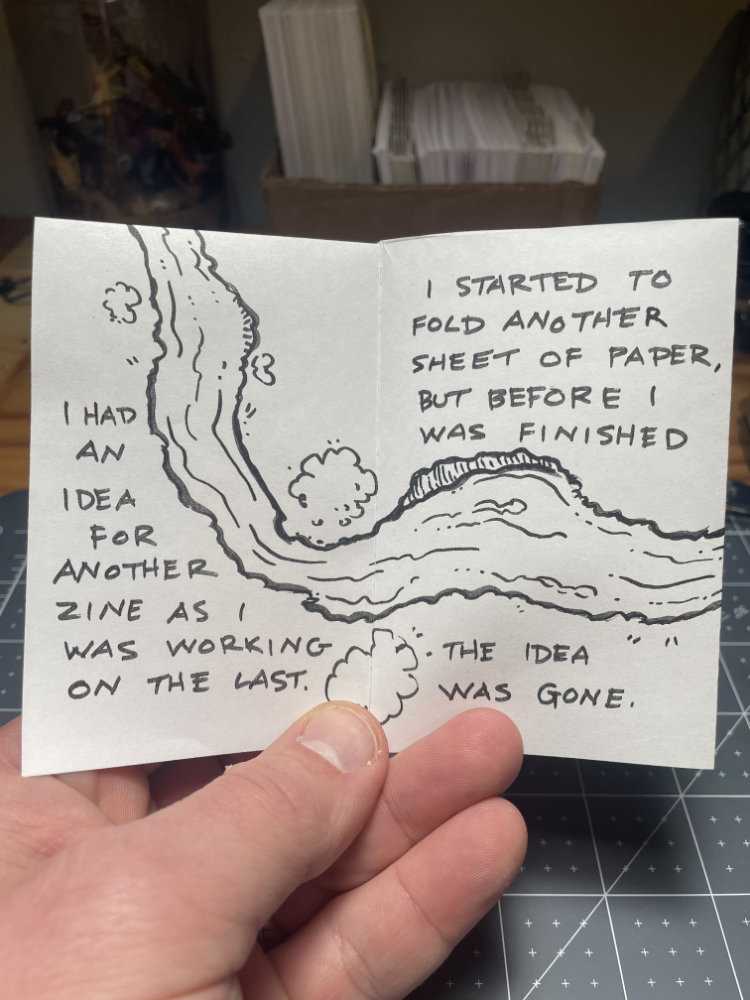 I HAD
AN
IDEA
FOR
ANOTHER
ZINE AS I
WAS WORKING
ON THE LAST.
I STARTED TO
FOLD ANOTHER
SHEET OF PAPER,
BUT BEFORE I
WAS FINISHED
THE IDEA
WAS GONE.